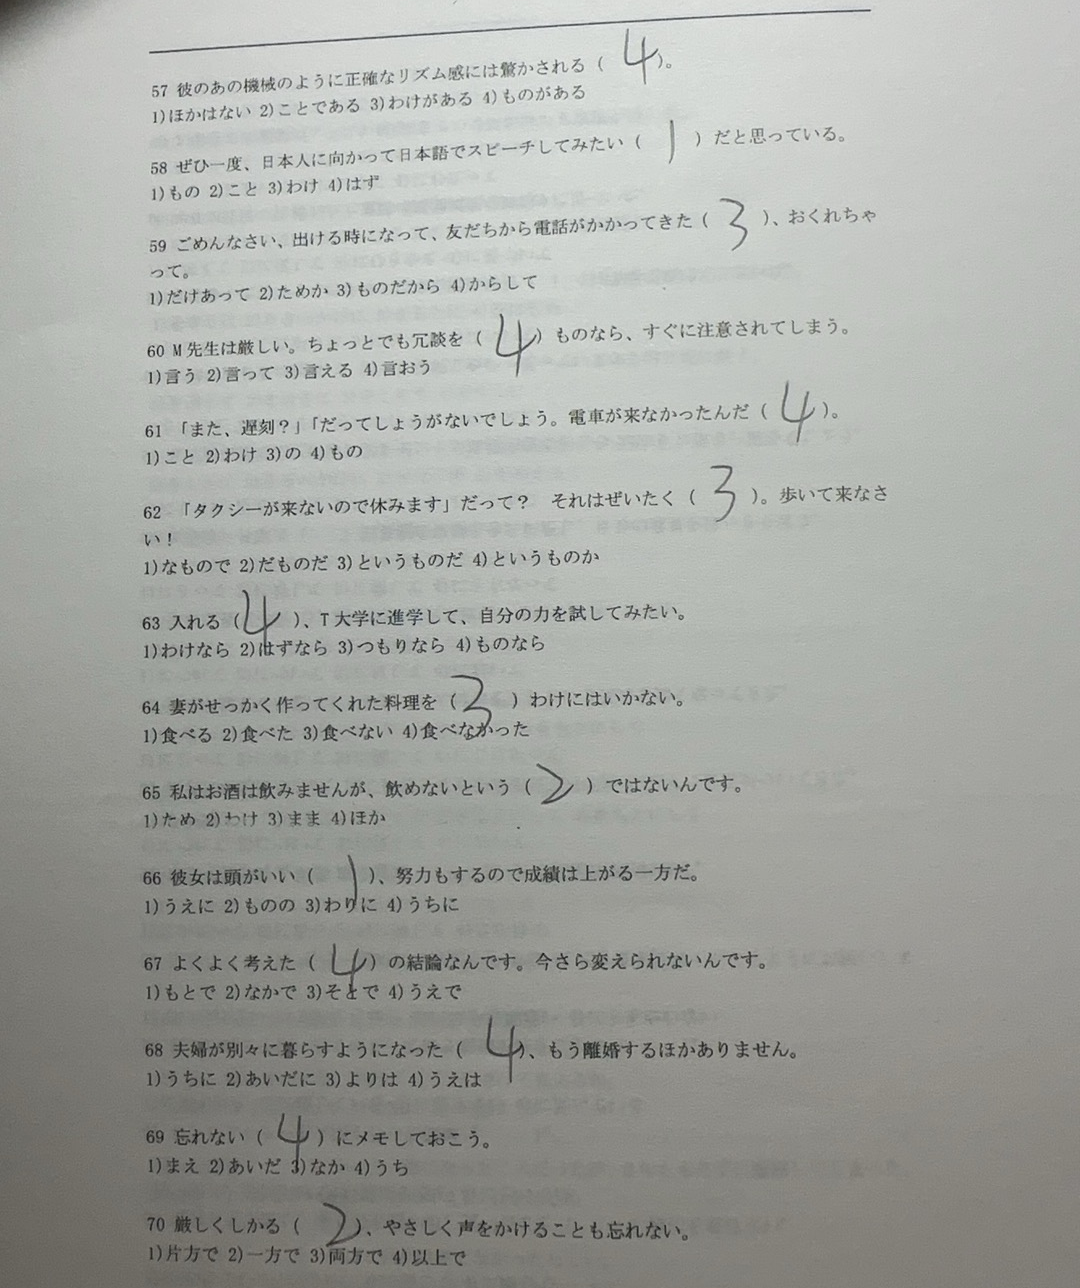 57 彼のあの機械のように正確なリズム感には驚かされる（ 4 ）。
1)ほかはない 2)ことである 3)わけがある 4)ものがある
58 ぜひ一度、日本人に向かって日本語でスピーチしてみたい（ 1 ）だと思っている。
1)もの 2)こと 3)わけ 4)はず
59 ごめんなさい、出ける時になって、友だちから電話がかかってきた（ 3 ）、おくれちゃ
って。
1)だけあって 2)ためか 3)ものだから 4)からして
60 M先生は厳しい。ちょっとでも冗談を（ 4 ）ものなら、すぐに注意されてしまう。
1)言う 2)言って 3)言える 4)言おう
61 「また、遅刻？」「だってしょうがないでしょう。電車が来なかったんだ（ 4 ）。
1)こと 2)わけ 3)の 4)もの
62 「タクシーが来ないので休みます」だって？ それはぜいたく（ 3 ）。歩いて来なさ
い！
1)なもので 2)だものだ 3)というものだ 4)というものか
63 入れる（ 4 ）、T大学に進学して、自分の力を試してみたい。
1)わけなら 2)はずなら 3)つもりなら 4)ものなら
64 妻がせっかく作ってくれた料理を（ 3 ）わけにはいかない。
1)食べる 2)食べた 3)食べない 4)食べなかった
65 私はお酒は飲みませんが、飲めないという（ 2 ）ではないんです。
1)ため 2)わけ 3)まま 4)ほか
66 彼女は頭がいい（ 1 ）、努力もするので成績は上がる一方だ。
1)うえに 2)ものの 3)わりに 4)うちに
67 よくよく考えた（ 4 ）の結論なんです。今さら変えられないんです。
1)もとで 2)なかで 3)そとで 4)うえで
68 夫婦が別々に暮らすようになった（ 4 ）、もう離婚するほかありません。
1)うちに 2)あいだに 3)よりは 4)うえは
69 忘れない（ 4 ）にメモしておこう。
1)まえ 2)あいだ 3)なか 4)うち
70 厳しくしかる（ 2 ）、やさしく声をかけることも忘れない。
1)片方で 2)一方で 3)両方で 4)以上で